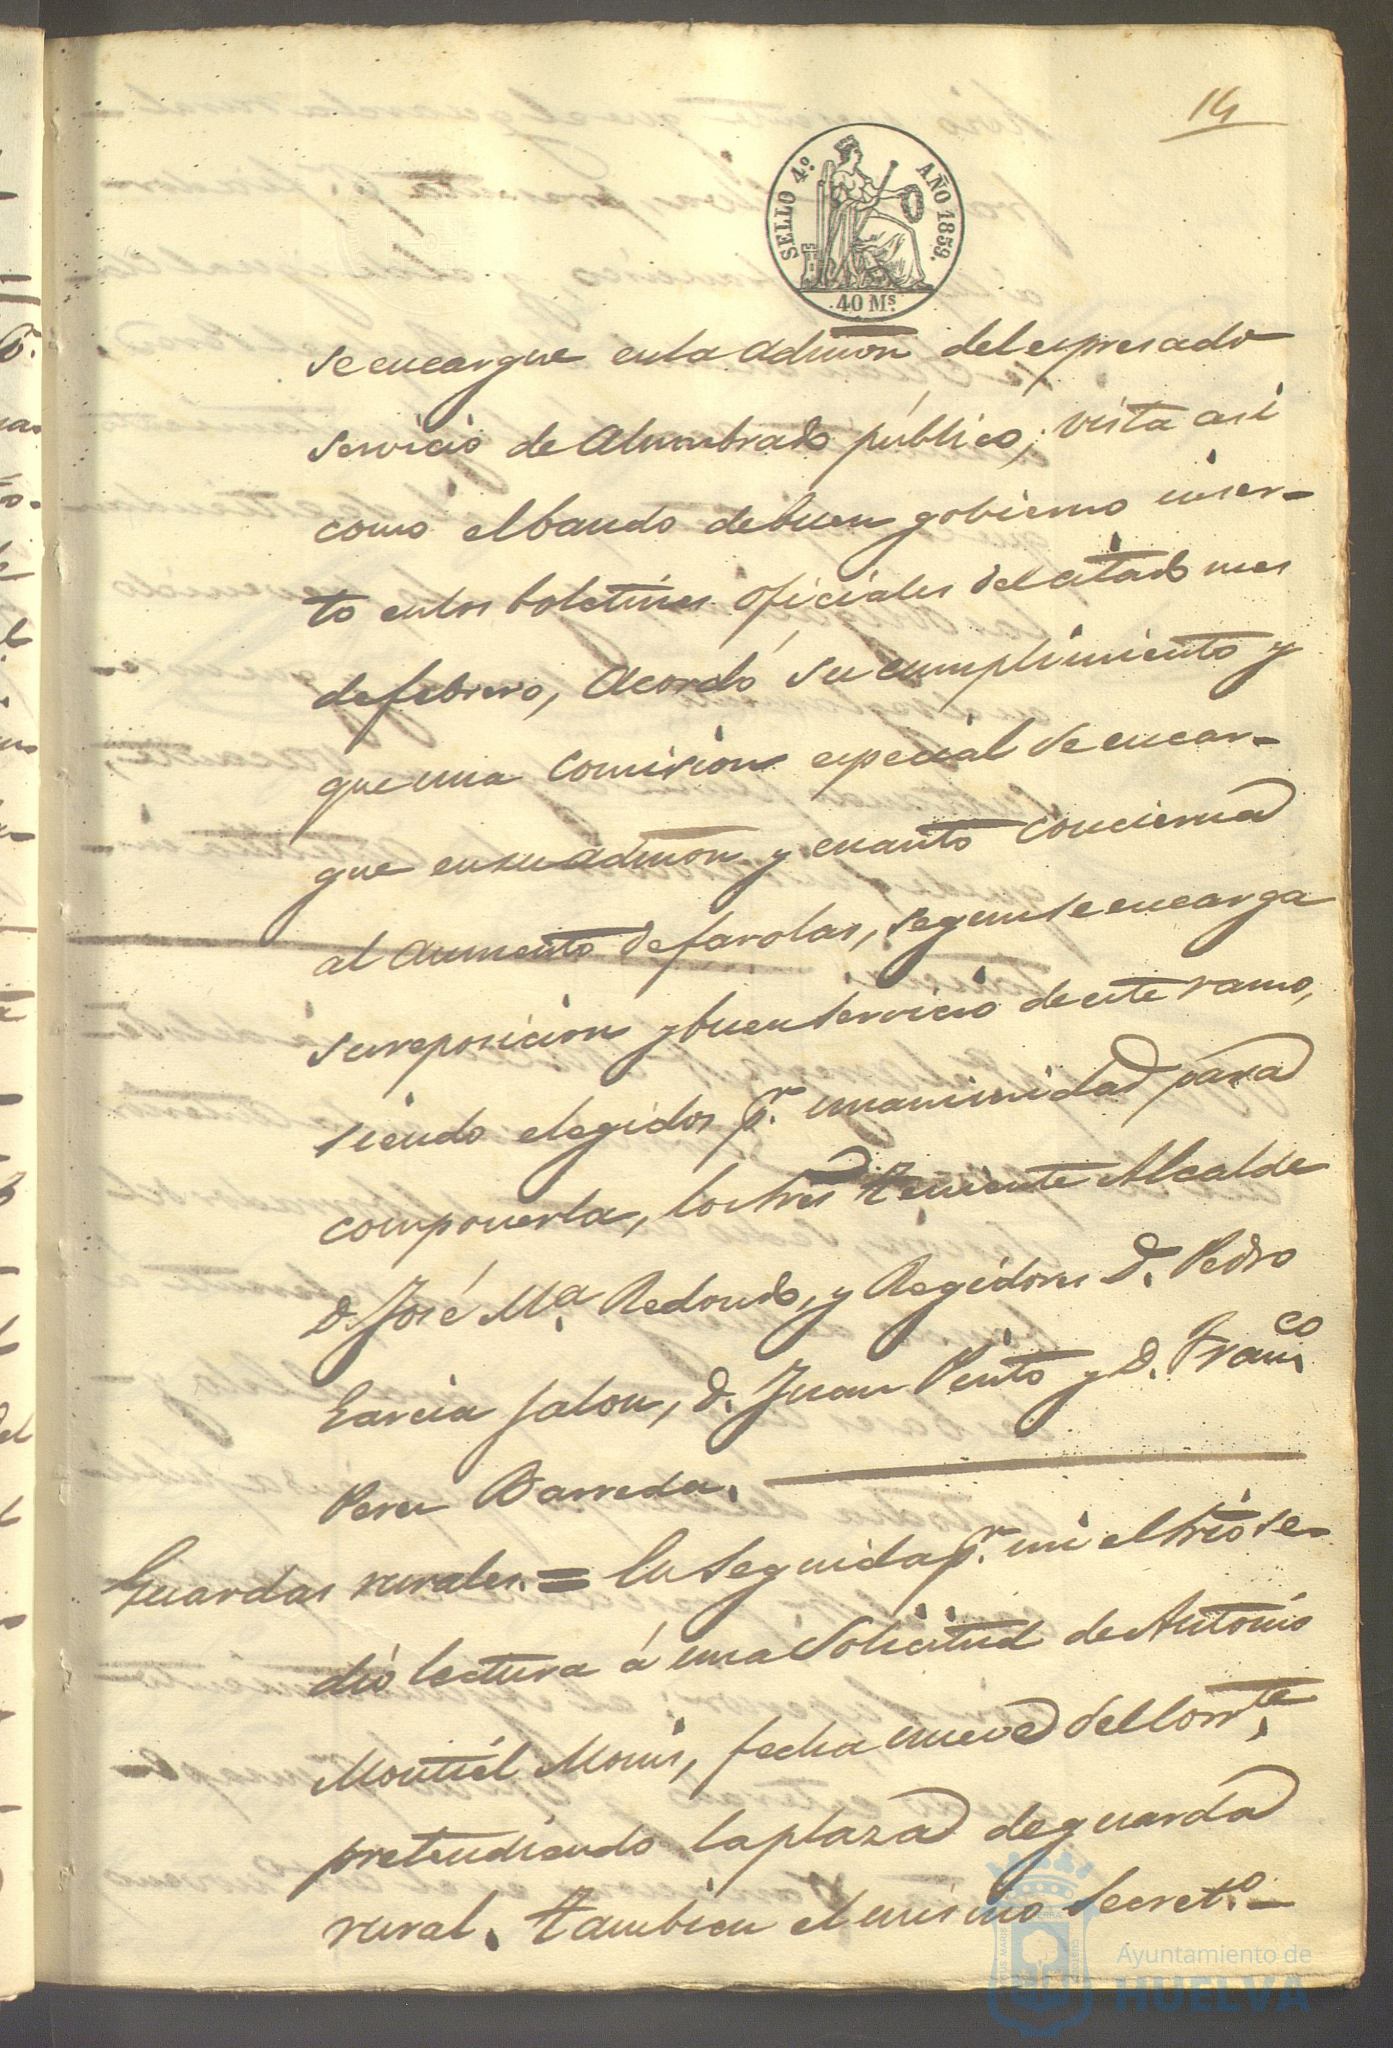 14
SELLO 4.º AÑO 1859.
40 Ms.
se encargue en la admon del espresado
servicio de Alumbrado público; vista asi
como el bando de buen gobierno inser-
to en los boletines oficiales del citado mes
de febrero, Acordó su cumplimiento y
que una Comision especial se encar-
gue en su admon y cuanto concierna
al Aumento de farolas, segun se encarga
su reposicion y buen servicio de este ramo,
siendo elegidos p.r unanimidad para
componerla, los Sres Teniente Alcalde
D. José M.a Redondo, y Regidores D. Pedro
Garcia Jalon, D. Juan Pinto y D. Fran.co
Perez Barreda.
Guardas rurales. = En seguida p.r mi el Srio se
dió lectura á una Solicitud de Antonio
Montiel Monis, fecha nueve del Corr.te
pretendiendo la plaza de guarda
rural. Tambien el mismo Secret.o
Ayuntamiento de
HUELVA